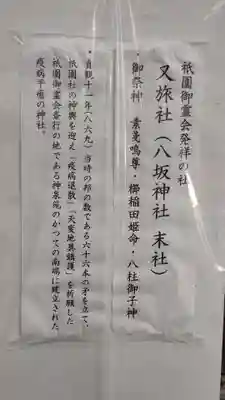 祇園御霊会発祥の社
又旅社（八坂神社 末社）
・御祭神 素戔嗚尊・櫛稲田姫命・八柱御子神
・貞観十一年（八六九）当時の邦の数である六十六本の矛を立て、
祇園社の神輿を迎え「疫病退散」「天変地異鎮護」を祈願した
祇園御霊会斎行の地である神泉苑のかつての南端に建立された、
疫病平癒の神社。